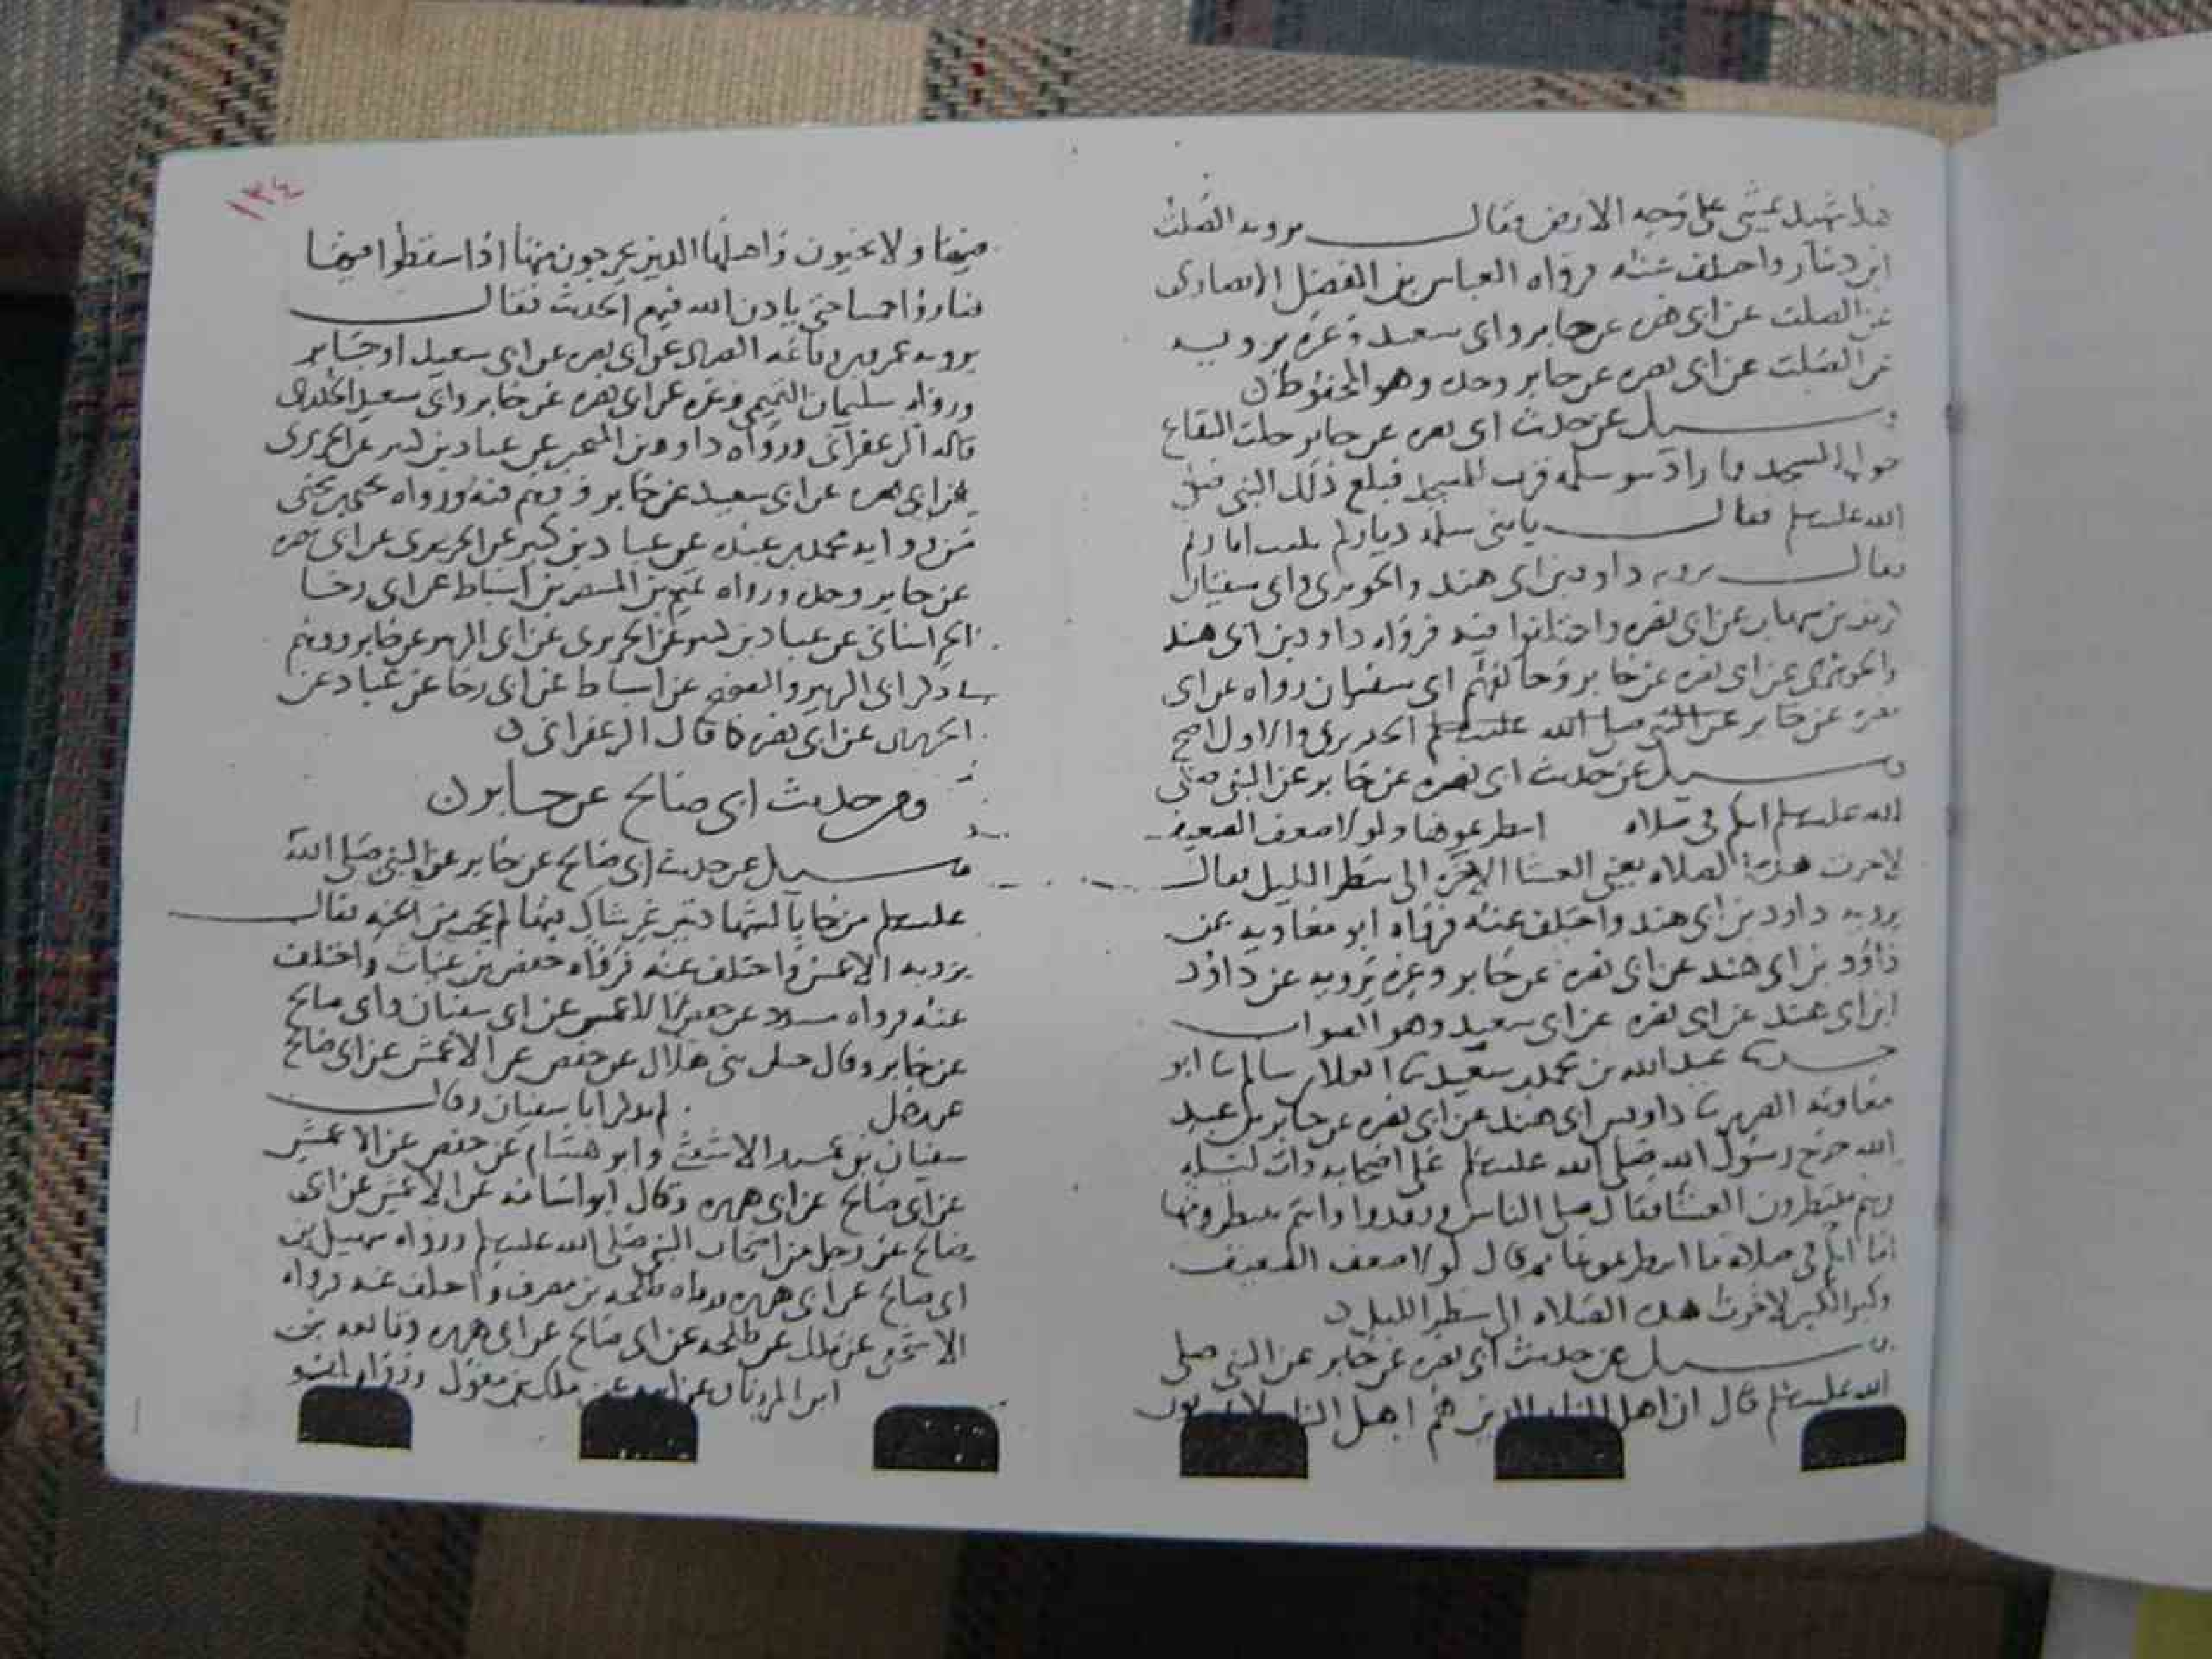 هذا شهيد يمشي على وجه الارض فقال يرويه الصلت
ابن دينار واختلف عنه فرواه العباس بن الفضل الانصارى
عن الصلت عن ابى نضره عن جابر وابى سعيد وغيره يرويه
عن الصلت عن ابى نضره عن جابر وحده وهو المحفوظ ن
وسيل عن حديث ابى نضره عن جابر خلت البقاع
حول المسجد فاراد بنو سلمه قرب المسجد فبلغ ذلك النبي صلى
الله عليه وسلم فقال يا بنى سلمه دياركم
فقال يرويه داود بن ابى هند والجريرى وابى سفيان
عن ابى نضره واختلفوا فيه فرواه داود بن ابى هند
والجريرى عن ابى نضره عن جابر وخالفهم ابى سفيان رواه عن ابى
نضره عن جابر عن النبي صلى الله عليه وسلم الخدرى والاول اصح
وسيل عن حديث ابى نضره عن جابر عن النبي صلى
الله عليه وسلم انكم فى صلاه انتظرتموها ولولا ضعف الضعيف
لاخرت هذه الصلاه يعنى العشا الاخره الى شطر الليل فقال
يرويه داود بن ابى هند واختلف عنه فرواه ابو معاويه عن
داود بن ابى هند عن ابى نضره عن جابر وغيره يرويه عن داود
ابن ابى هند عن ابى نضره عن ابى سعيد وهو الصواب
حدثنا عبد الله بن محمد بن سعيد نا العلا بن سالم نا ابو
معاويه الضرير نا داود بن ابى هند عن ابى نضره عن جابر بن عبد
الله خرج رسول الله صلى الله عليه وسلم على اصحابه ذات ليله
وهم ينتظرون العشا فقال صلى الناس ورقدوا وانتم تنتظرونها
اما انكم فى صلاة ما انتظرتموها ثم قال لولا ضعف الضعيف
وكبر الكبير لاخرت هذه الصلاه الى شطر الليل ن
وسيل عن حديث ابى نضره عن جابر عن النبي صلى
الله عليه وسلم قال ان اهل النار الذين هم اهل النار لا يموتون
١٣٤
فيها ولا يحيون واهلها الذين يخرجون منها اذا سقطوا فيها
حتى ياذن الله فيهم الحديث فقال
يرويه عن ابى نضره عن ابى سعيد او جابر
ورواه سليمان التيمى وغيره عن ابى نضره عن جابر وابى سعيد الخدرى
قاله الزعفرانى ورواه داود بن المحبر عن عباد بن كثير عن الجريرى
عن ابى نضره عن ابى سعيد عن جابر ووهم فيه ورواه
من روايه محمد بن عبده عن عباد بن كثير عن الجريرى عن ابى نضره
عن جابر وحده ورواه تميم بن المنتصر بن اسباط عن ابى رجا
الخراسانى عن عباد بن كثير عن الجريرى عن ابى الزبير عن جابر ووهم
فى ذكر ابى الزبير والصحيح عن اسباط عن ابى رجا عن عباد عن
الجريرى عن ابى نضره كما قال الزعفرانى ن
ومن حديث ابى صالح عن جابر ن
وسيل عن حديث ابى صالح عن جابر عن النبي صلى الله
عليه وسلم من جا بالشهادتين غير شاك بهما لم يحجب من الجنه فقال
يرويه الاعمش واختلف عنه فرواه حفص بن غياث واختلف
عنه فرواه مسدد عن حفص عن الاعمش عن ابى سفيان وابى صالح
عن جابر وقال هلال عن حفص عن الاعمش عن ابى صالح
عن رجل لم يذكر ابا سفيان وقال
سفيان بن الاشعث وابو هشام عن حفص عن الاعمش
عن ابى صالح عن ابى هريره وقال ابو اسامه عن الاعمش عن ابى
صالح عن رجل من اصحاب النبي صلى الله عليه وسلم ورواه سهيل بن
ابى صالح عن ابى هريره ورواه طلحه بن مصرف واختلف عنه فرواه
الاشجعى عن مالك عن طلحه عن ابى صالح عن ابى هريره وتابعه
عن مالك بن مغول